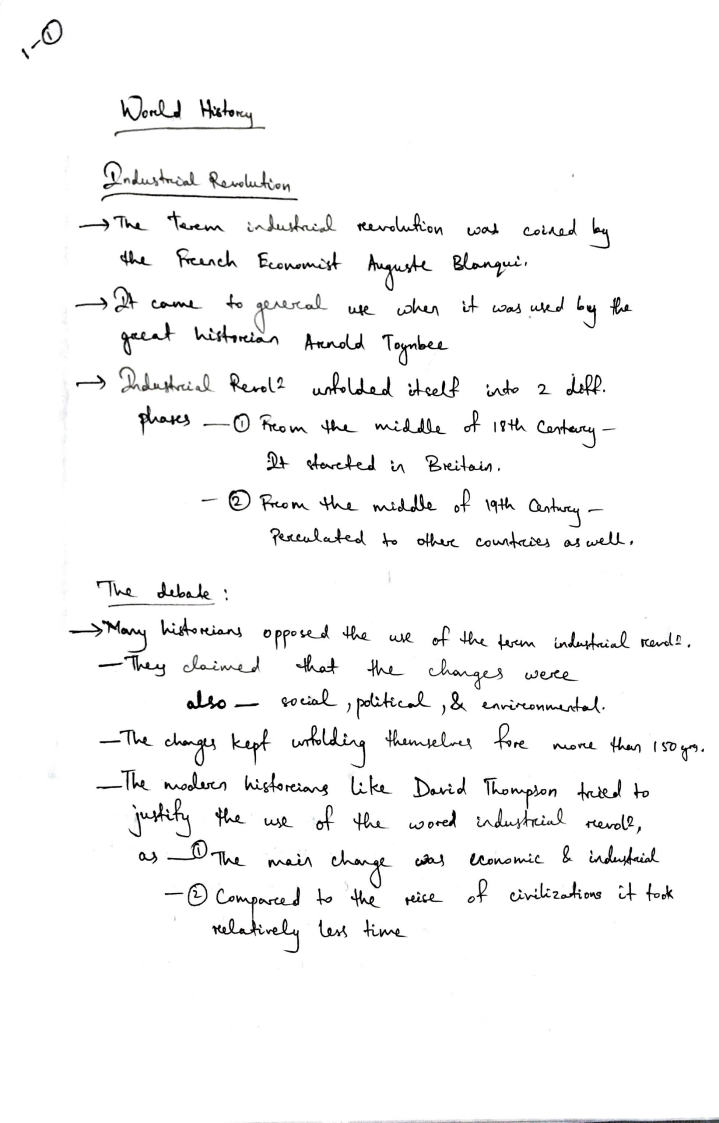 1-①
World History
Industrial Revolution
→ The term industrial revolution was coined by
the French Economist Auguste Blanqui.
→ It came to general use when it was used by the
great historian Arnold Toynbee
→ Industrial Revolⁿ unfolded itself into 2 diff.
phases — ① From the middle of 18th Century –
It started in Britain.
– ② From the middle of 19th Century –
Perculated to other countries as well.
The debate :
→ Many historians opposed the use of the term industrial revolⁿ.
— They claimed that the changes were
also — social, political, & environmental.
— The changes kept unfolding themselves for more than 150 yrs.
— The modern historians like David Thompson tried to
justify the use of the word industrial revolⁿ,
as — ① The main change was economic & industrial
— ② Compared to the rise of civilizations it took
relatively less time